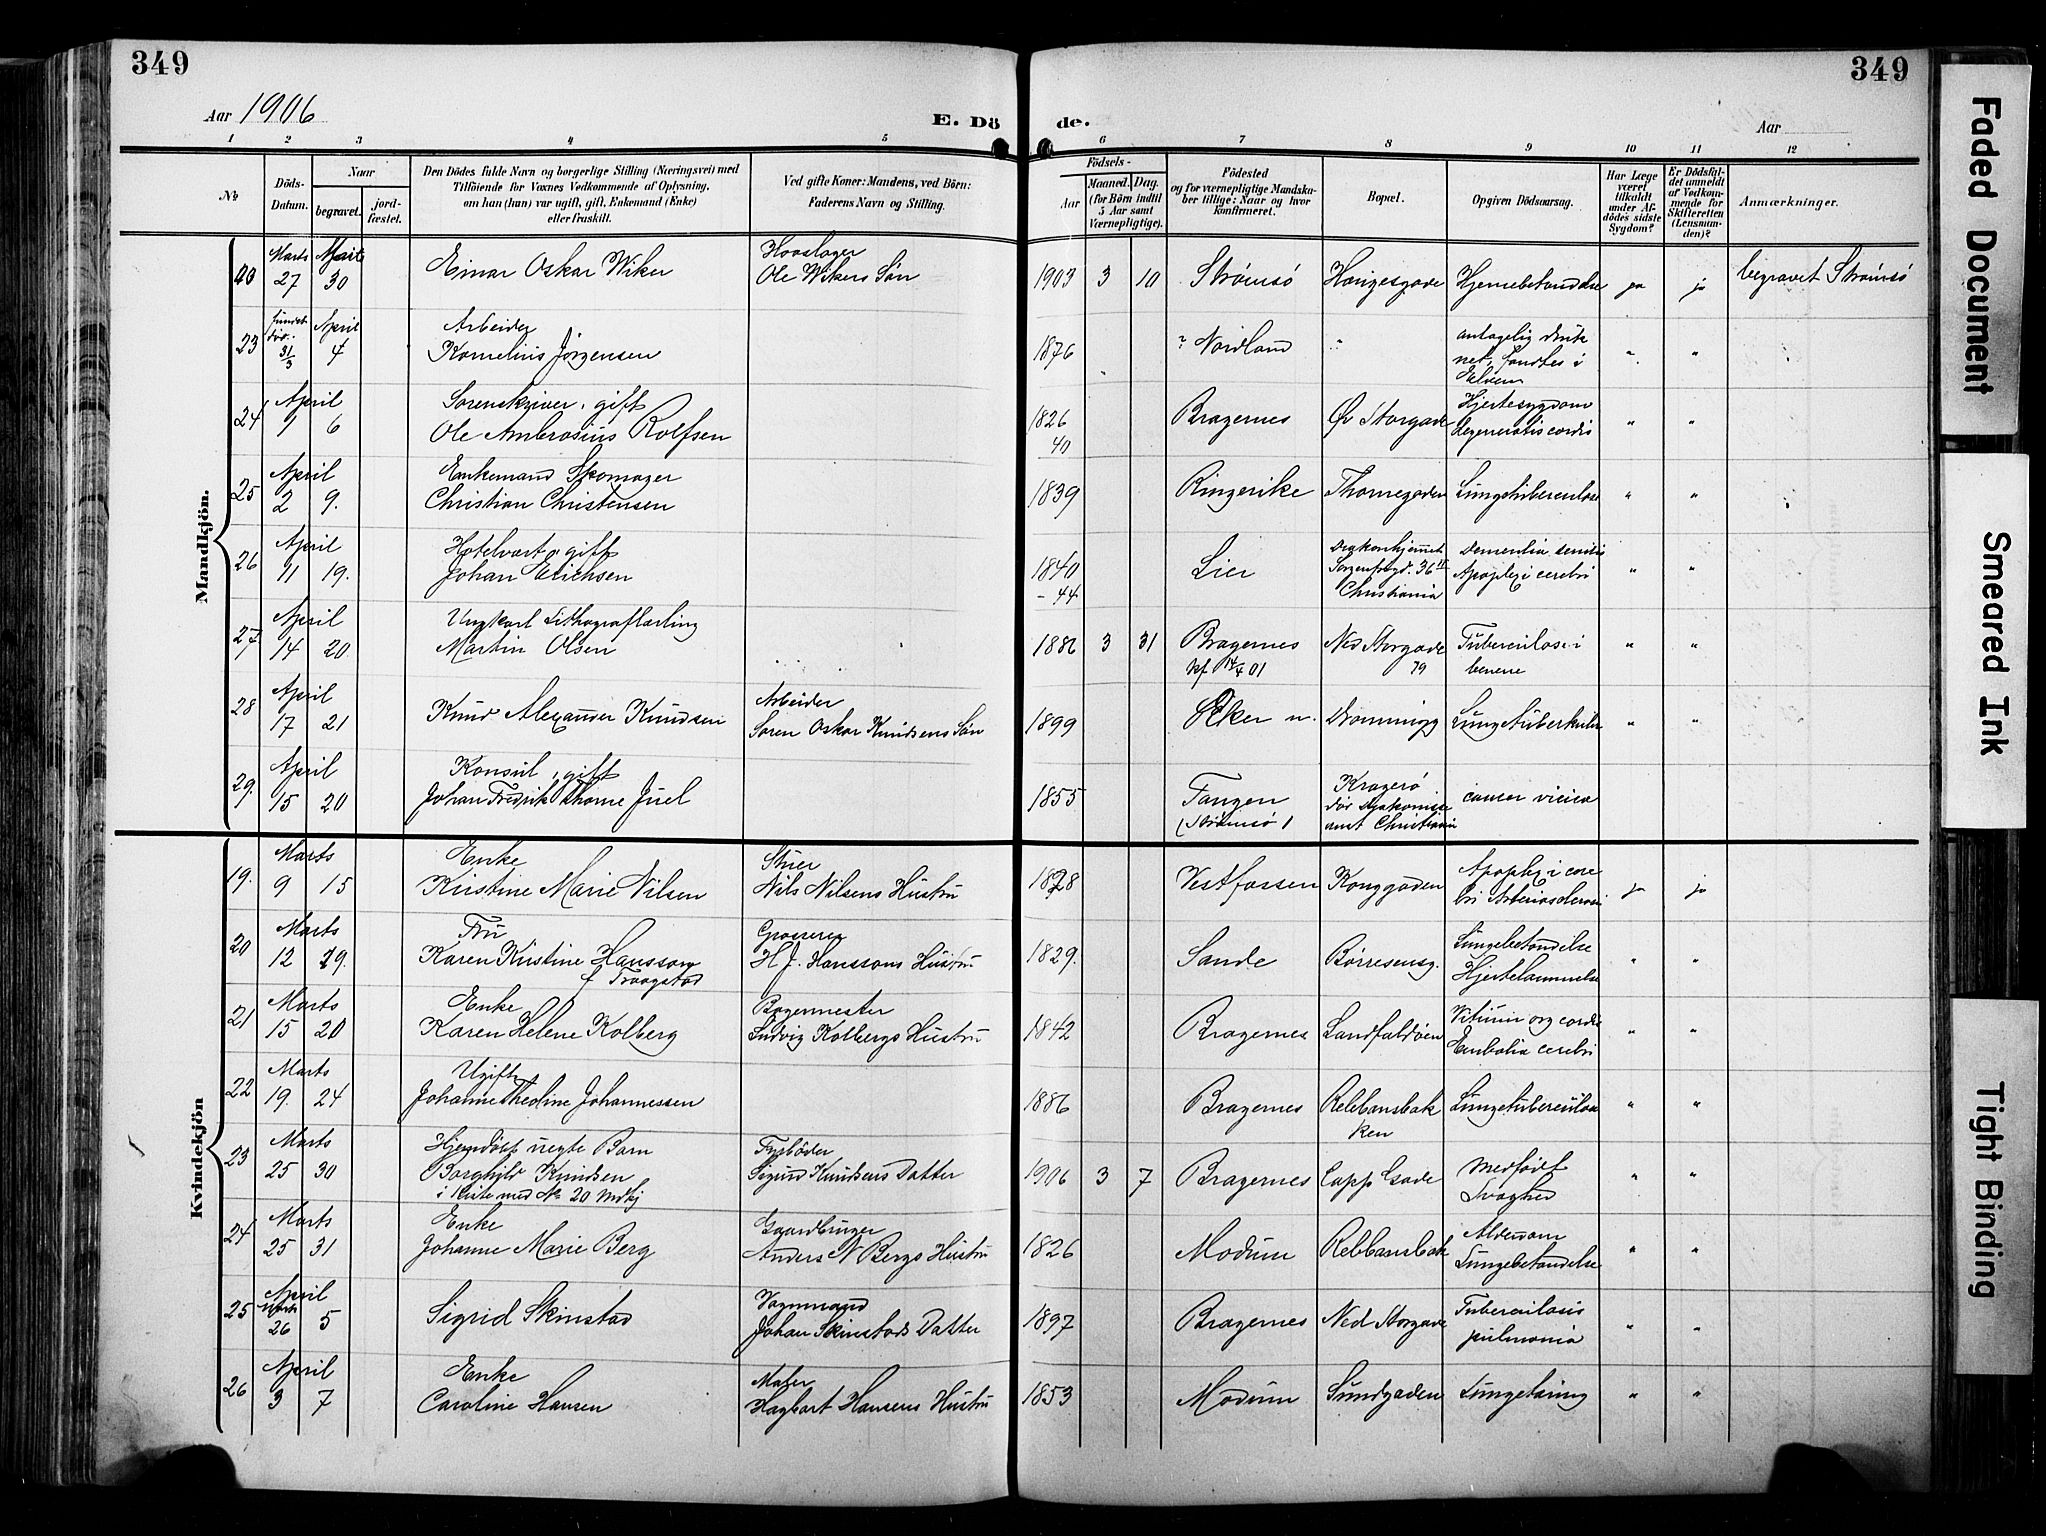 349
349
Aar 1906
E. Dö
de.
Aar
1 2 3 4 5 6 7 8 9 10 11 12
No
Döds-Datum.
Naar
begravet.
jord-fæstet.
Den Dödes fulde Navn og borgerlige Stilling (Næringsvei) med
Tilföiende for Voxnes Vedkommende af Oplysning,
om han (hun) var ugift, gift, Enkemand (Enke)
eller fraskilt.
Ved gifte Koner: Mandens, ved Börn:
Faderens Navn og Stilling.
Födsels-
Aar
Maaned. Dag.
(for Börn indtil
5 Aar samt
Værnepligtige).
Födested
og for værnepligtige Mandska-
ber tillige: Naar og hvor
konfirmeret.
Bopæl.
Opgiven Dödsaarsag.
Har Læge
været
tilkaldt
under Af-
dödes sidste
Sygdom?
Er Dödsfal-
det anmeldt
af Vedkom-
mende for
Skifteretten
(Lensman-
den)?
Anmærkninger.
Mandkjön.
Marts
27 30
Einar Oskar Wiker
Ole Wikers Søn
1903 3 10 Strømsö Haugesgade Hjernebetændelse ja ja begravet Strømsö
23 31/3 April 4
Arbeider
Kornelius Jörgensen
1876 ? Nordland " antagelig druk
net, fandtes i
Elven " "
24 April 1 6
Sorenskriver, gift
Ole Ambrosius Rolfsen
1826
40
Bragernes Øv Storgade Hjertesygdom
degeneratio cordis " "
25 April 2 9.
Enkemand Skomager
Christian Christensen
1839 Ringerike Thornegaden Lungetuberculose " "
26 April 11 19.
Hotelvært, gift
Johan Erichsen
1840
- 44
Lier Diakonhjemmet
36
Christiania
Dementia senilis
Apoplexi cerebri " "
27 April 14 20
Ungkarl Lithograflærling
Martin Olsen
1886 3 31 Bragernes
kf 14/4 01
Ned Storgade
79
Tuberculose i
benene " "
28 April 17 21
Knud Alexander Knudsen
Arbeider
Søren Oskar Knudsens Søn
1899 Eker n. Dronningg Lungetuberkulose " "
29. April 15 20
Konsul, gift
Johan Fredrik Thorne Juel
1855 Tangen
(Strømsö)
Kragerö
död Diakonisse
anst Christiania
cancer
Kvindekjön
19. Marts 9 15
Enke
Kristine Marie Nilsen
Nils Nilsens Hustru
1828 Vestfossen Konggaden Apoplexi cere
bri Arteriosclerose ja ja
20 Marts 12 19.
Fru
Karen Kristine Hansson
f Fraagstad
Grosserer
H J. Hanssons Hustru
1829. Sande Börresensg. Lungebetændelse
Hjertelammelse " "
21 Marts 15 20
Enke
Karen Helene Kolberg
Bagermester
Ludvig Kolbergs Hustru
1842 Bragernes Landfaldöen Vitium org cordis
Embolia cerebri " "
22 Marts 19. 24
Ugift
Johanne Theoline Johannessen
1886 Bragernes Rebbansbak
ken
Lungetuberculose " "
23 Marts 25 30
Hjemdöbt uegte Barn
Borghild Knudsen
i Kiste med No 20 Mdkj
Fyrböder
Sigurd Knudsens Datter
1906 3 7 Bragernes Capp Gade Medfödt
Svaghed " "
24 Marts 25 31
Enke
Johanne Marie Berg
Gaardbruger
Anders N Bergs Hustru
1826 Modum Rebbansbak Alderdom
Lungebetændelse " "
25 April
Marts
26 5
Sigrid Skinstad
Vognmand
Johan Skinstads Datter
1897 Bragernes Ned Storgade Tuberculosis
pulmonia " "
26 April 3 7
Enke
Caroline Hansen
Maler
Hagbart Hansens Hustru
1853 Modum Sundgaden Lungetæring " "
Faded Document
Smeared Ink
Tight Binding